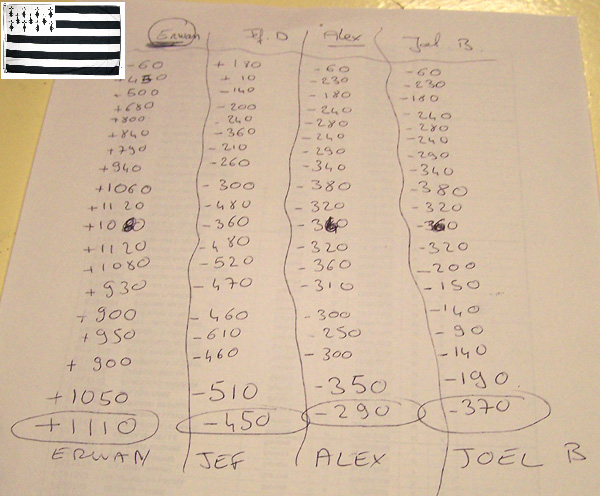 Erwan Jf. D Alex Joel B.
-60 +180 -60 -60
+450 +10 -230 -230
+500 -140 -180 -180
+680 -200 -240 -240
+800 -240 -280 -280
+840 -360 -240 -240
+790 -210 -290 -290
+940 -260 -340 -340
+1060 -300 -380 -380
+1120 -480 -320 -320
+1080 -360 -360 -360
+1120 -480 -320 -320
+1080 -520 -360 -200
+930 -470 -310 -150
+900 -460 -300 -140
+950 -610 -250 -90
+900 -460 -300 -140
+1050 -510 -350 -190
+1110 -450 -290 -370
ERWAN JEF ALEX JOEL B